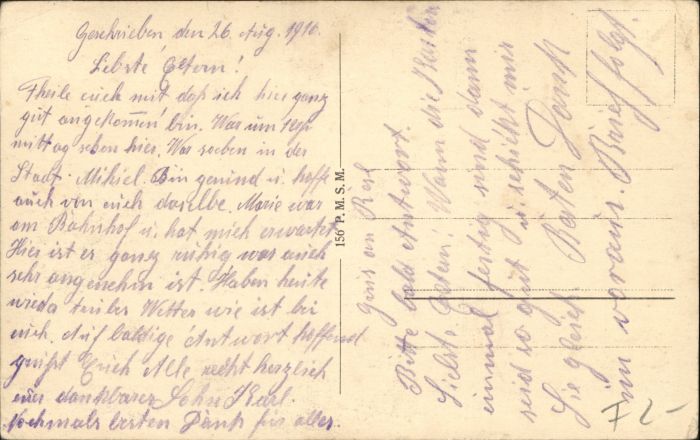 Geschrieben den 26. Aug. 1916.
Liebste Eltern!
Theile euch mit daß ich hier ganz
gut angekommen bin. War um 1 Uhr
mittag schon hier. War soeben in der
Stadt Mihiel. Bin gesund u. hoffe
auch von euch dasselbe. Marie war
am Bahnhof u. hat mich erwartet.
Hier ist es ganz ruhig was auch
sehr angenehm ist. Haben heute
wieda trübes Wetter wie ist bei
euch. Auf baldige Antwort hoffend
grüßt Euch Alle recht herzlich
euer dankbarer Sohn Karl.
Nochmals besten Dank für alles.
156 P. M. S. M.
Gruß an Resl
Bitte bald Antwort.
Liebste Eltern! Wann die Karten
einmal fertig sind dann
seid so gut u. schickt mir
Sie gleich. Besten Dank
im voraus. Brief folgt.
F 2-